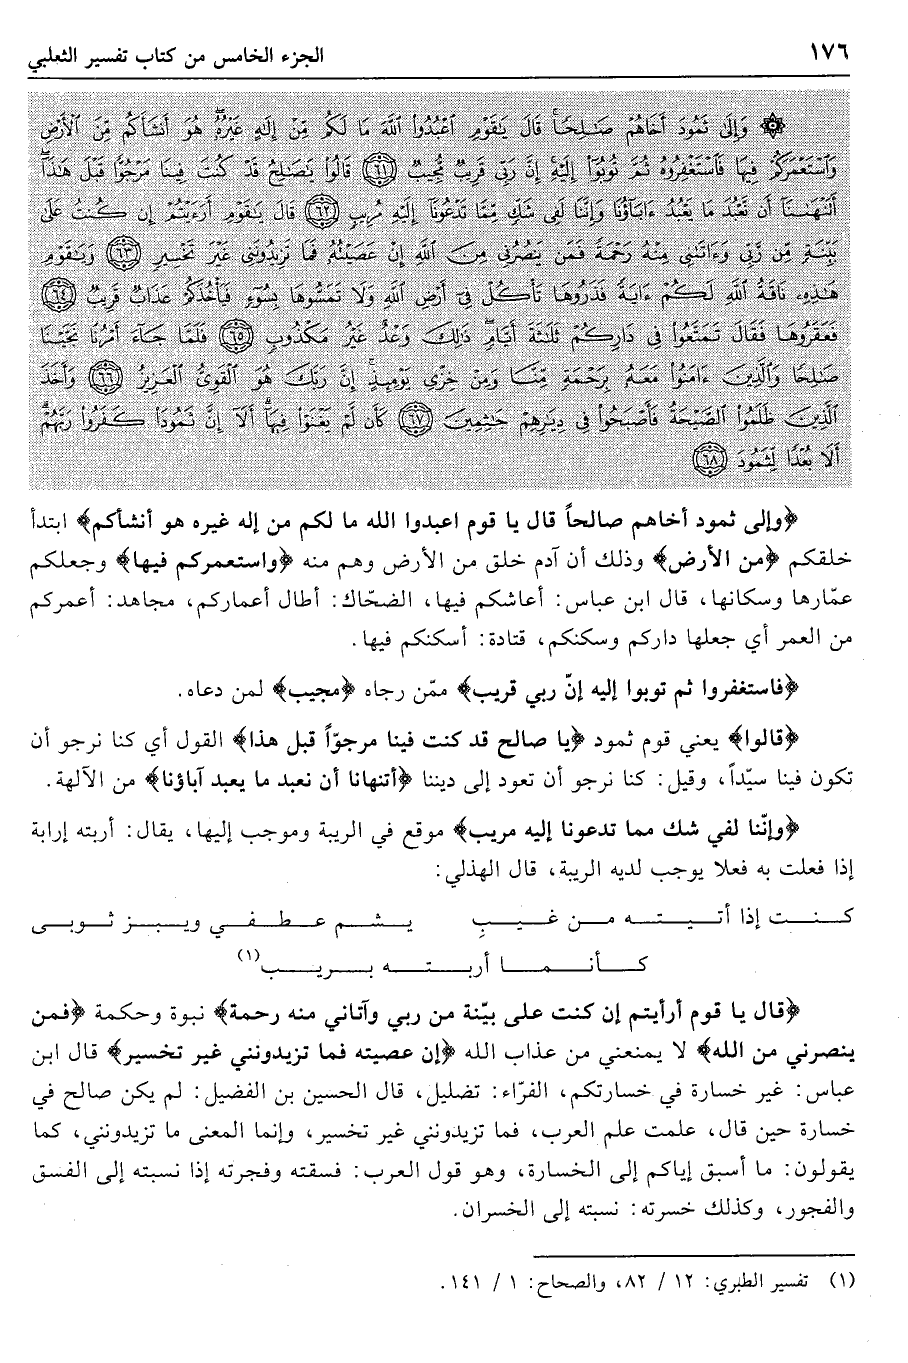 ١٧٦
الجزء الخامس من كتاب تفسير الثعلبي
۞ وَإِلَىٰ ثَمُودَ أَخَاهُمْ صَٰلِحًا ۚ قَالَ يَٰقَوْمِ ٱعْبُدُوا۟ ٱللَّهَ مَا لَكُم مِّنْ إِلَٰهٍ غَيْرُهُۥ ۖ هُوَ أَنشَأَكُم مِّنَ ٱلْأَرْضِ
وَٱسْتَعْمَرَكُمْ فِيهَا فَٱسْتَغْفِرُوهُ ثُمَّ تُوبُوٓا۟ إِلَيْهِ ۚ إِنَّ رَبِّى قَرِيبٌ مُّجِيبٌ ﴿٦١﴾ قَالُوا۟ يَٰصَٰلِحُ قَدْ كُنتَ فِينَا مَرْجُوًّا قَبْلَ هَٰذَآ ۖ
أَتَنْهَىٰنَآ أَن نَّعْبُدَ مَا يَعْبُدُ ءَابَآؤُنَا وَإِنَّنَا لَفِى شَكٍّ مِّمَّا تَدْعُونَآ إِلَيْهِ مُرِيبٍ ﴿٦٢﴾ قَالَ يَٰقَوْمِ أَرَءَيْتُمْ إِن كُنتُ عَلَىٰ
بَيِّنَةٍ مِّن رَّبِّى وَءَاتَىٰنِى مِنْهُ رَحْمَةً فَمَن يَنصُرُنِى مِنَ ٱللَّهِ إِنْ عَصَيْتُهُۥ ۖ فَمَا تَزِيدُونَنِى غَيْرَ تَخْسِيرٍ ﴿٦٣﴾ وَيَٰقَوْمِ
هَٰذِهِۦ نَاقَةُ ٱللَّهِ لَكُمْ ءَايَةً فَذَرُوهَا تَأْكُلْ فِىٓ أَرْضِ ٱللَّهِ وَلَا تَمَسُّوهَا بِسُوٓءٍ فَيَأْخُذَكُمْ عَذَابٌ قَرِيبٌ ﴿٦٤﴾
فَعَقَرُوهَا فَقَالَ تَمَتَّعُوا۟ فِى دَارِكُمْ ثَلَٰثَةَ أَيَّامٍ ۖ ذَٰلِكَ وَعْدٌ غَيْرُ مَكْذُوبٍ ﴿٦٥﴾ فَلَمَّا جَآءَ أَمْرُنَا نَجَّيْنَا
صَٰلِحًا وَٱلَّذِينَ ءَامَنُوا۟ مَعَهُۥ بِرَحْمَةٍ مِّنَّا وَمِنْ خِزْىِ يَوْمِئِذٍ ۗ إِنَّ رَبَّكَ هُوَ ٱلْقَوِىُّ ٱلْعَزِيزُ ﴿٦٦﴾ وَأَخَذَ
ٱلَّذِينَ ظَلَمُوا۟ ٱلصَّيْحَةُ فَأَصْبَحُوا۟ فِى دِيَٰرِهِمْ جَٰثِمِينَ ﴿٦٧﴾ كَأَن لَّمْ يَغْنَوْا۟ فِيهَآ ۗ أَلَآ إِنَّ ثَمُودَا۟ كَفَرُوا۟ رَبَّهُمْ ۗ
أَلَا بُعْدًا لِّثَمُودَ ﴿٦٨﴾
﴿وإلى ثمود أخاهم صالحاً قال يا قوم اعبدوا الله ما لكم من إله غيره هو أنشأكم﴾ ابتدأ
خلقكم ﴿من الأرض﴾ وذلك أن آدم خلق من الأرض وهم منه ﴿واستعمركم فيها﴾ وجعلكم
عمّارها وسكانها، قال ابن عباس: أعاشكم فيها، الضحّاك: أطال أعماركم، مجاهد: أعمركم
من العمر أي جعلها داركم وسكنكم، قتادة: أسكنكم فيها.
﴿فاستغفروا ثم توبوا إليه إنّ ربي قريب﴾ ممّن رجاه ﴿مجيب﴾ لمن دعاه.
﴿قالوا﴾ يعني قوم ثمود ﴿يا صالح قد كنت فينا مرجوّاً قبل هذا﴾ القول أي كنا نرجو أن
تكون فينا سيّداً، وقيل: كنا نرجو أن تعود إلى ديننا ﴿أتنهانا أن نعبد ما يعبد آباؤنا﴾ من الآلهة.
﴿وإنّنا لفي شك مما تدعونا إليه مريب﴾ موقع في الريبة وموجب إليها، يقال: أربته إرابة
إذا فعلت به فعلا يوجب لديه الريبة، قال الهذلي:
كنت إذا أتيته من غيبِ يشم عطفي ويبز ثوبي
كأنما أربته بريب(١)
﴿قال يا قوم أرأيتم إن كنت على بيّنة من ربي وآتاني منه رحمة﴾ نبوة وحكمة ﴿فمن
ينصرني من الله﴾ لا يمنعني من عذاب الله ﴿إن عصيته فما تزيدونني غير تخسير﴾ قال ابن
عباس: غير خسارة في خسارتكم، الفرّاء: تضليل، قال الحسين بن الفضيل: لم يكن صالح في
خسارة حين قال، علمت علم العرب، فما تزيدونني غير تخسير، وإنما المعنى ما تزيدونني، كما
يقولون: ما أسبق إياكم إلى الخسارة، وهو قول العرب: فسقته وفجرته إذا نسبته إلى الفسق
والفجور، وكذلك خسرته: نسبته إلى الخسران.
(١) تفسير الطبري: ١٢ / ٨٢، والصحاح: ١ / ١٤١.